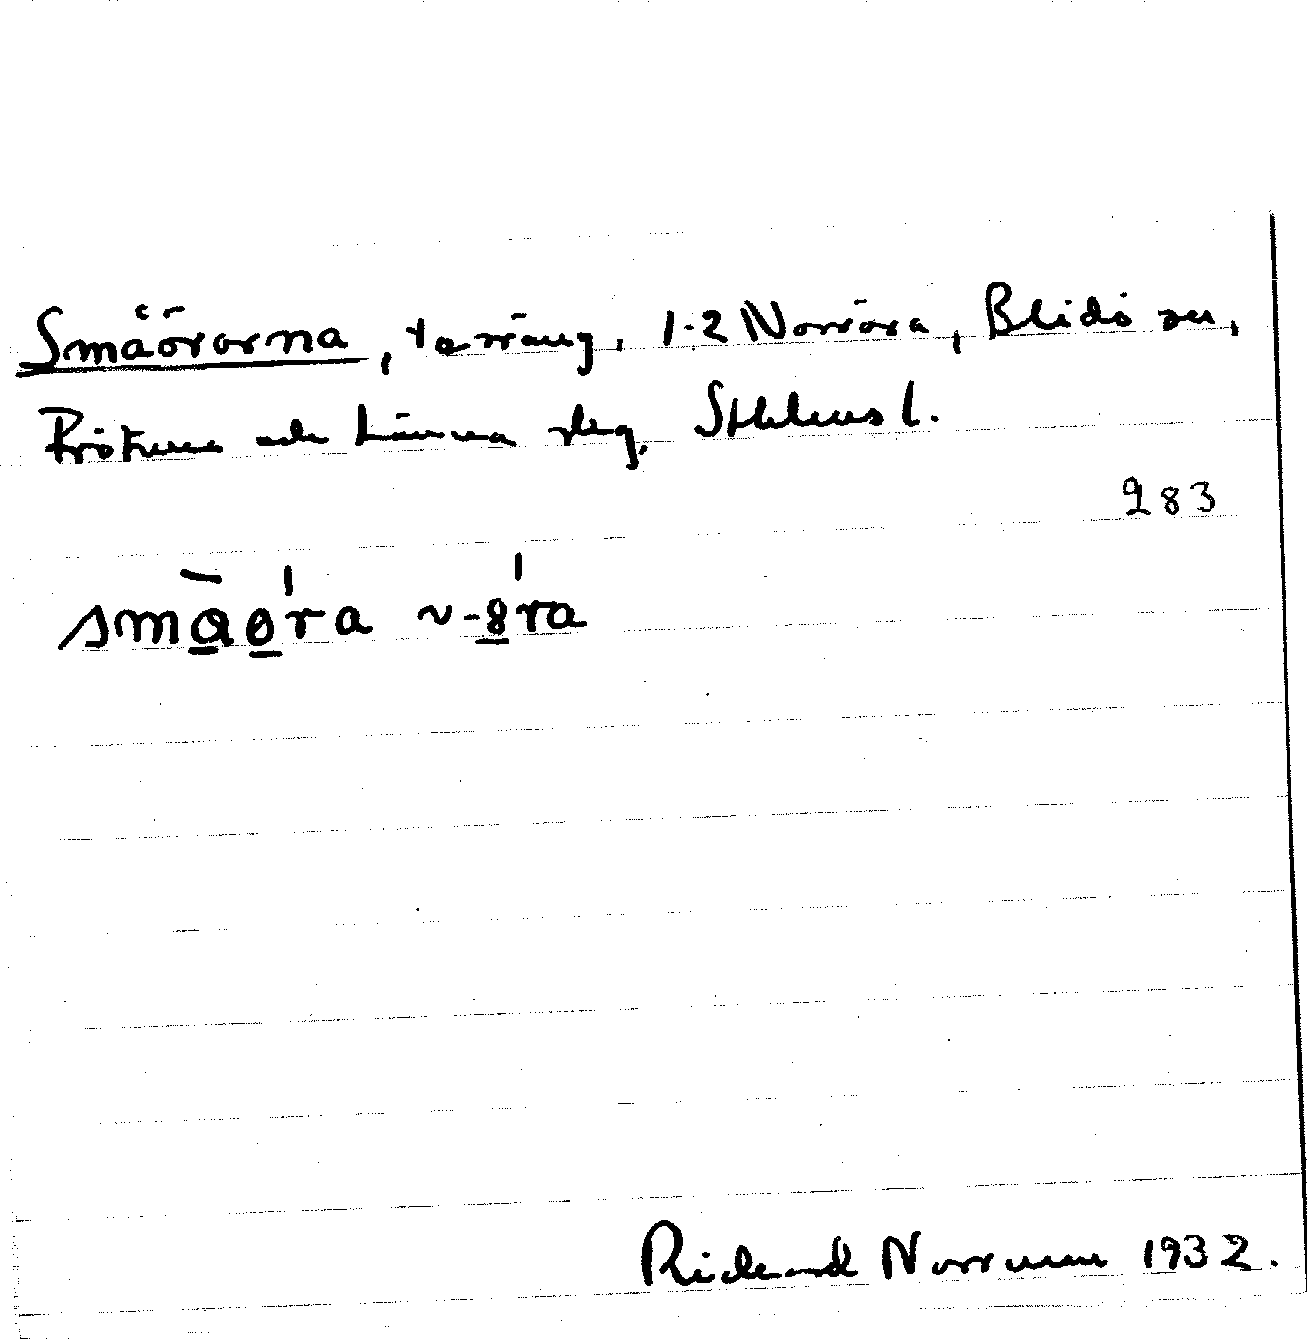 Smäörarna, terräng, 1-2 Norröra, Blidö sn,
Frötuna och Länna slg, Sthlms l.
283
småöra ~ -öra
Richard Norrman 1932.